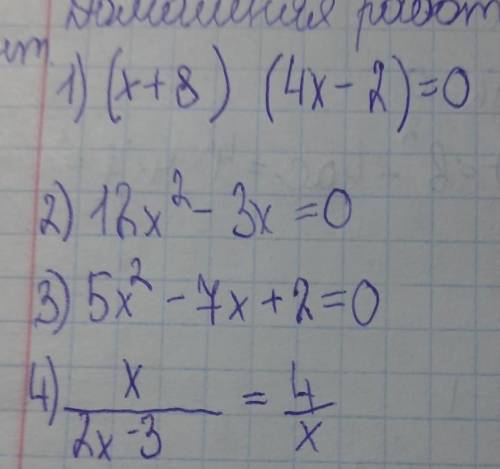 Домашняя работ
1) (x+8) (4x-2)=0
2) 12x² - 3x = 0
3) 5x² - 7x + 2 = 0
4) x/(2x-3) = 4/x